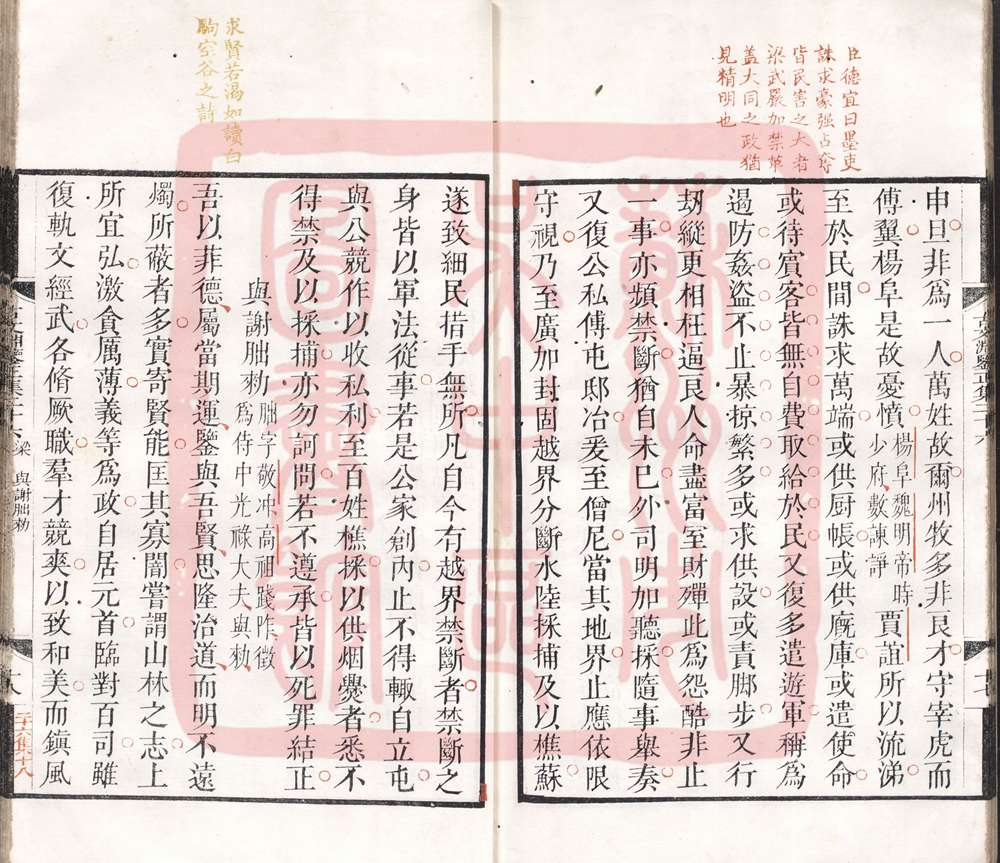 臣德宜曰墨吏
誅求豪强占奪
皆民害之大者
梁武嚴加禁革
蓋大同之政猶
見精明也
申旦非爲一人萬姓故爾州牧多非良才守宰虎而
傅翼楊阜是故憂憤楊阜魏明帝時少府數諫諍賈誼所以流涕
至於民間誅求萬端或供厨帳或供廐庫或遣使命
或待賓客皆無自費取給於民又復多遣遊軍稱爲
遏防姦盗不止暴掠繁多或求供設或責脚步又行
刼縱更相枉逼良人命盡富室財殫此爲怨酷非止
一事亦頻禁斷猶自未已外司明加聽採隨事舉奏
又復公私傅屯邸冶爰至僧尼當其地界止應依限
守視乃至廣加封固越界分斷水陸採捕及以樵蘇
求賢若渴如讀白
駒空谷之詩
遂致細民措手無所凡自今有越界禁斷者禁斷之
身皆以軍法從事若是公家創內止不得輙自立屯
與公競作以收私利至百姓樵採以供烟爨者悉不
得禁及以採捕亦勿訶問若不遵承皆以死罪結正
與謝朏勑朏字敬冲高祖踐阼徵爲侍中光祿大夫與勑
吾以菲德屬當期運鑒與吾賢思隆治道而明不遠
燭所蔽者多實寄賢能匡其寡闇嘗謂山林之志上
所宜弘激貪厲薄義等爲政自居元首臨對百司雖
復執文經武各脩厥職羣才競爽以致和美而鎭風
梁 與謝朏勑
十八